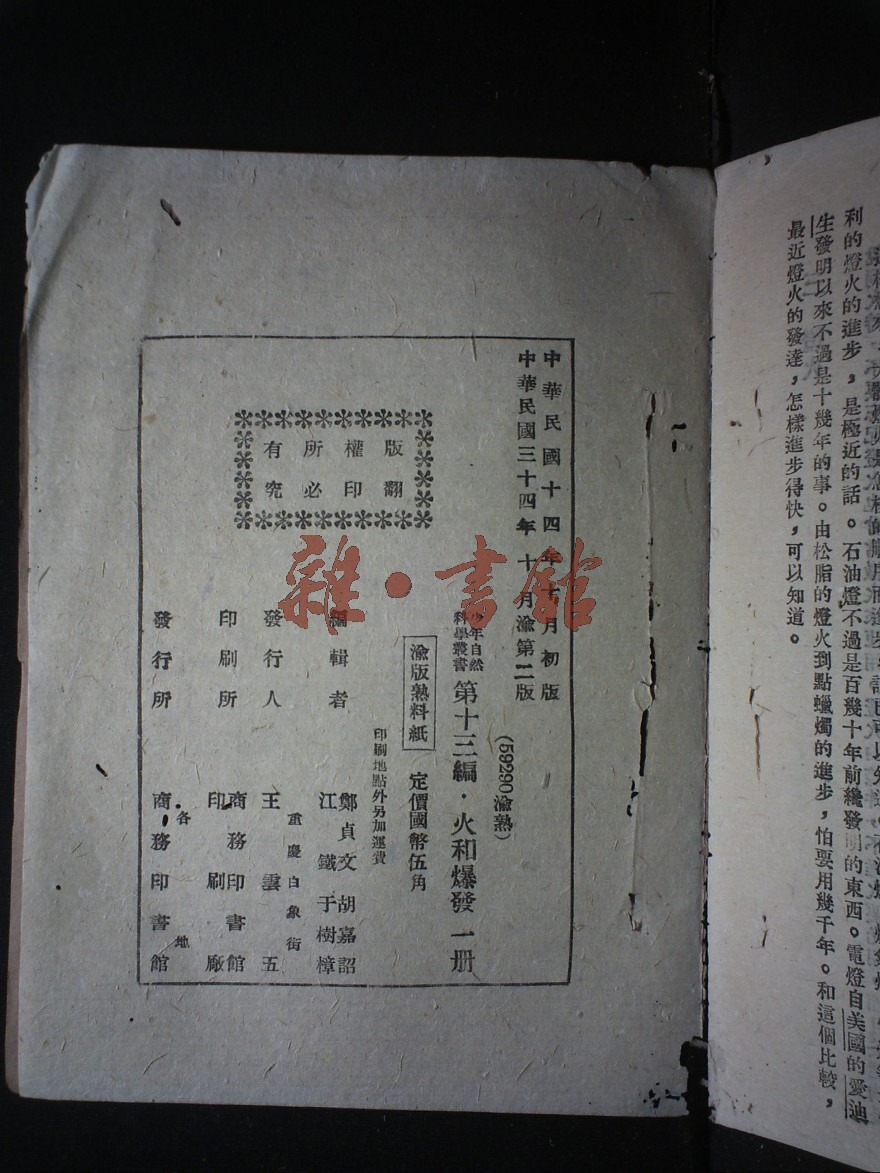 利的燈火的進步，是極近的話。石油燈不過是百幾十年前纔發明的東西。電燈自美國的愛迪
生發明以來不過是十幾年的事。由松脂的燈火到點蠟燭的進步，怕要用幾千年。和這個比較，
最近燈火的發達，怎樣進步得快，可以知道。
中華民國十四年 月初版
中華民國三十四年十月渝第二版
(59290渝熟)
少年自然
科學叢書
第十三編·火和爆發 一册
渝版熟料紙
定價國幣伍角
印刷地點外另加運費
版權所有
翻印必究
編輯者
鄭貞文 胡嘉詔
江鐵 于樹樟
發行人
重慶白象街
王雲五
印刷所
商務印書館
印刷廠
發行所
各地
商務印書館
雜·書館